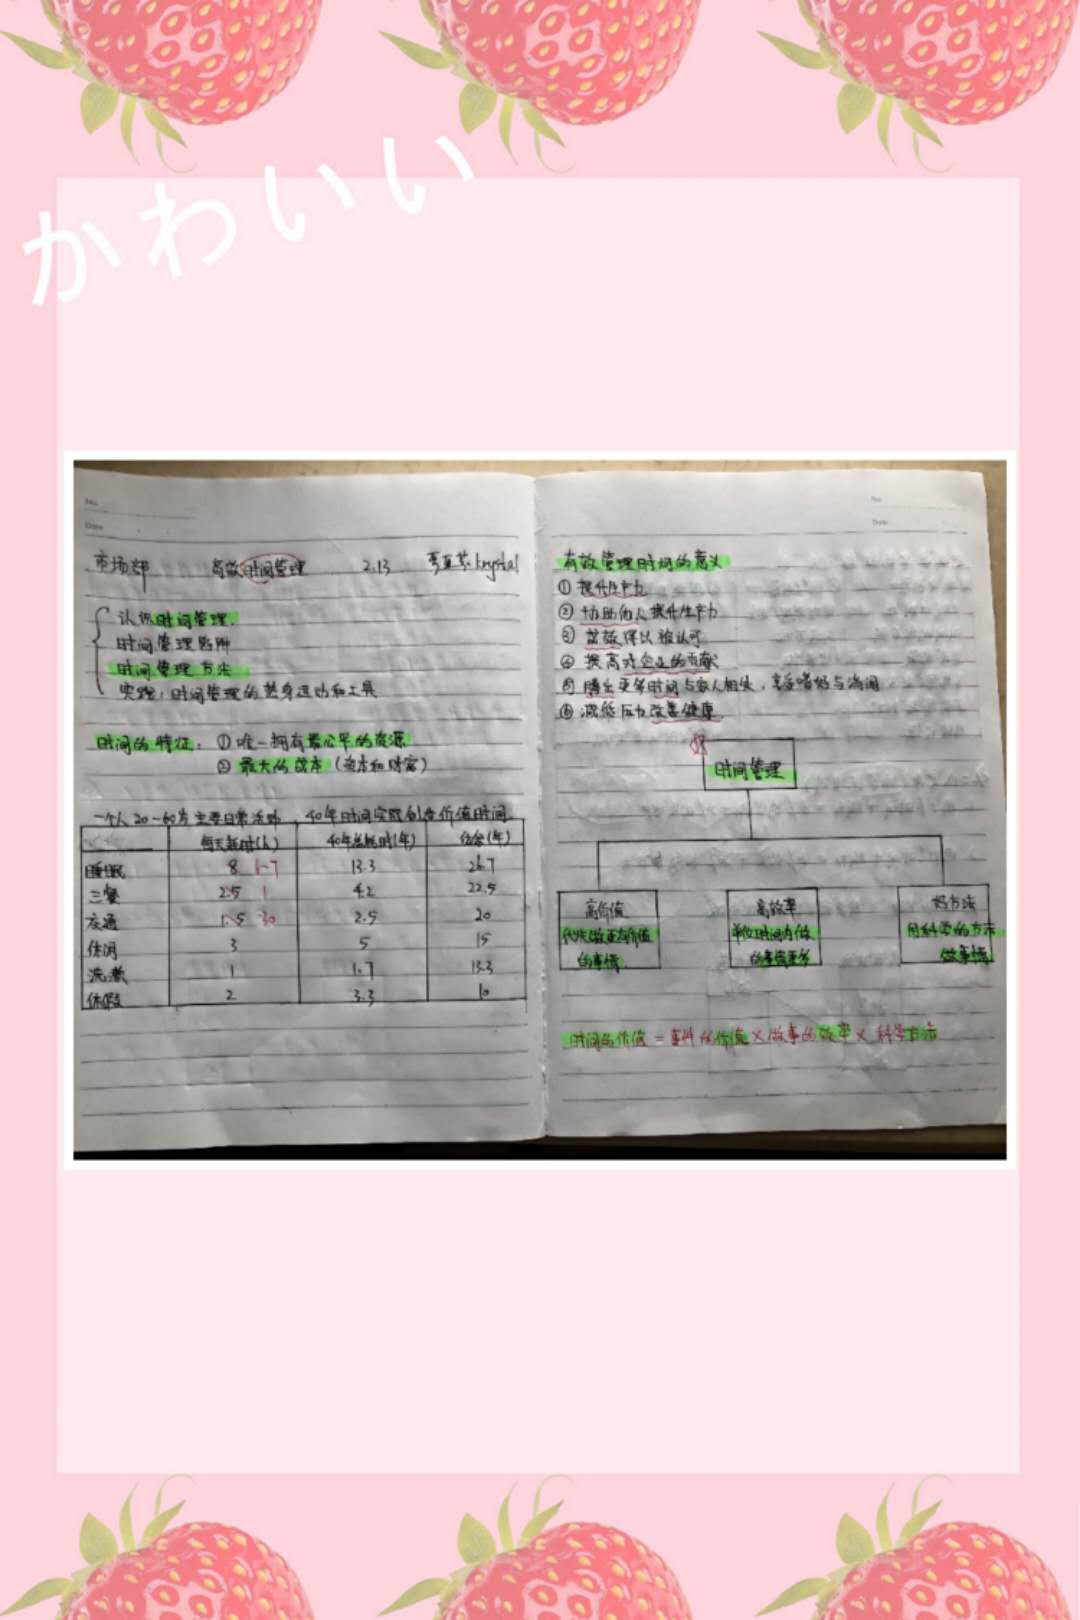 かわいい
No.
Date
市场部 高效时间管理 2.13 Krystal
认识时间管理
时间管理陷阱
时间管理方法
实践：时间管理的热身运动和工具
时间的特征：① 唯一拥有最公平的资源
② 最大的成本（资本和财富）
一个人20-60岁主要日常活动，40年时间实际创造价值时间
每天耗时(h) 40年总耗时(年) 结余(年)
睡眠 8 6-7 13.3 26.7
三餐 2.5 1 4.2 22.5
交通 1.5 30 2.5 20
休闲 3 5 15
洗漱 1 1.7 13.3
休假 2 3.3 10
No.
Date
有效管理时间的意义
① 提升生产力
② 协助他人提升生产力
③ 苦劳得以被认可
④ 提高对企业的贡献
⑤ 腾出更多时间与家人相处，享受嗜好与消闲
⑥ 减低压力改善健康
时间管理
高价值
优先做更有价值
的事情
高效率
单位时间内做
的事情更多
好方法
用科学的方法
做事情
时间的价值 = 事件的价值 × 做事的效率 × 科学方法